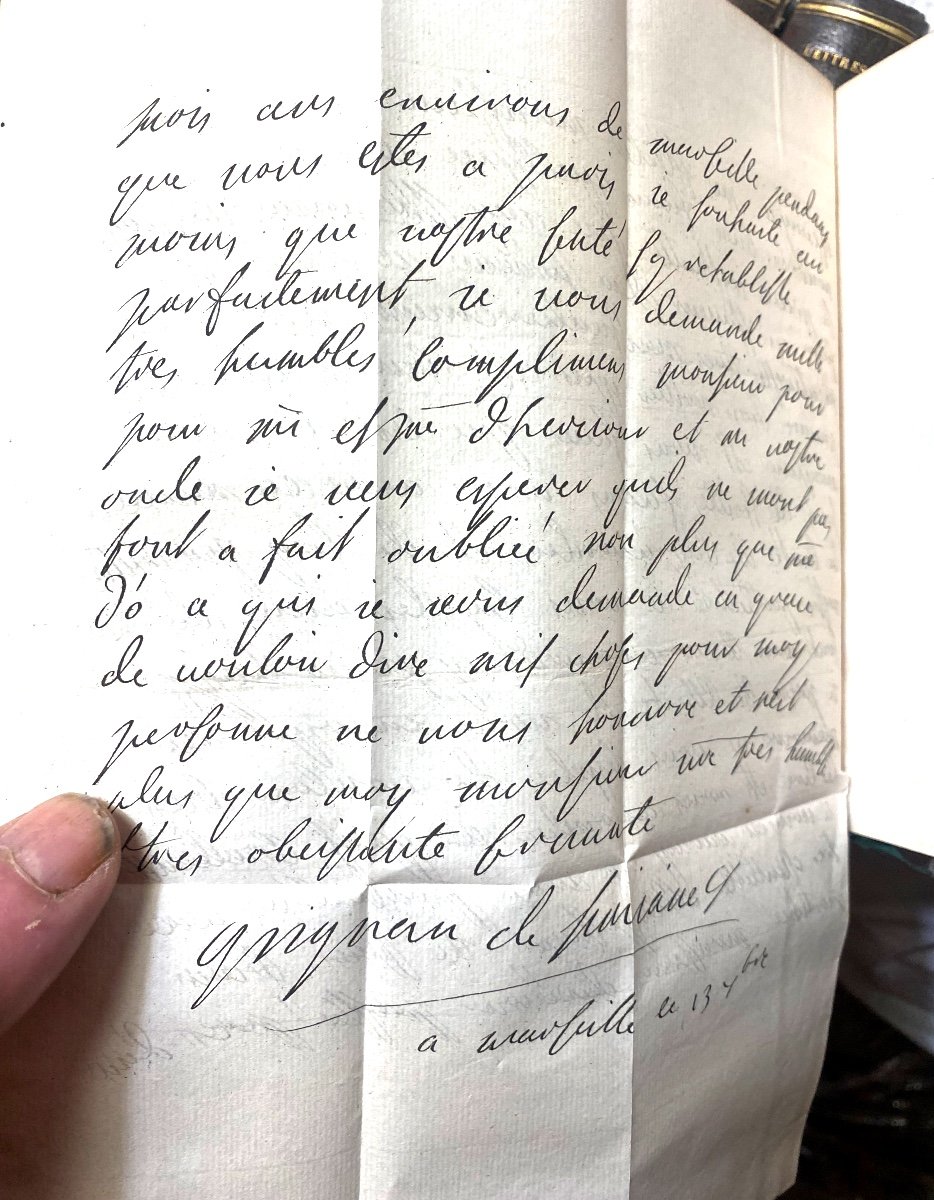 LETTRES
pois aus environs de marseille pendans
que vous estes a paris ie souhaite au
moins que vostre senté sy retablisse
parfaitement ie vous demande mille
tres humbles complimens monsieur pour
pour mr et me d'hericour et a vostre
oncle ie veus esperer quils ne mont pas
tout a fait oubliée non plus que me
a qui ie vous demande en grace
de vouloir dire mil choses pour moy
personne ne vous honnore et nest
plus que moy monsieur vre tres humble
tres obeissante servante
grignan de simiane
a marseille le 13